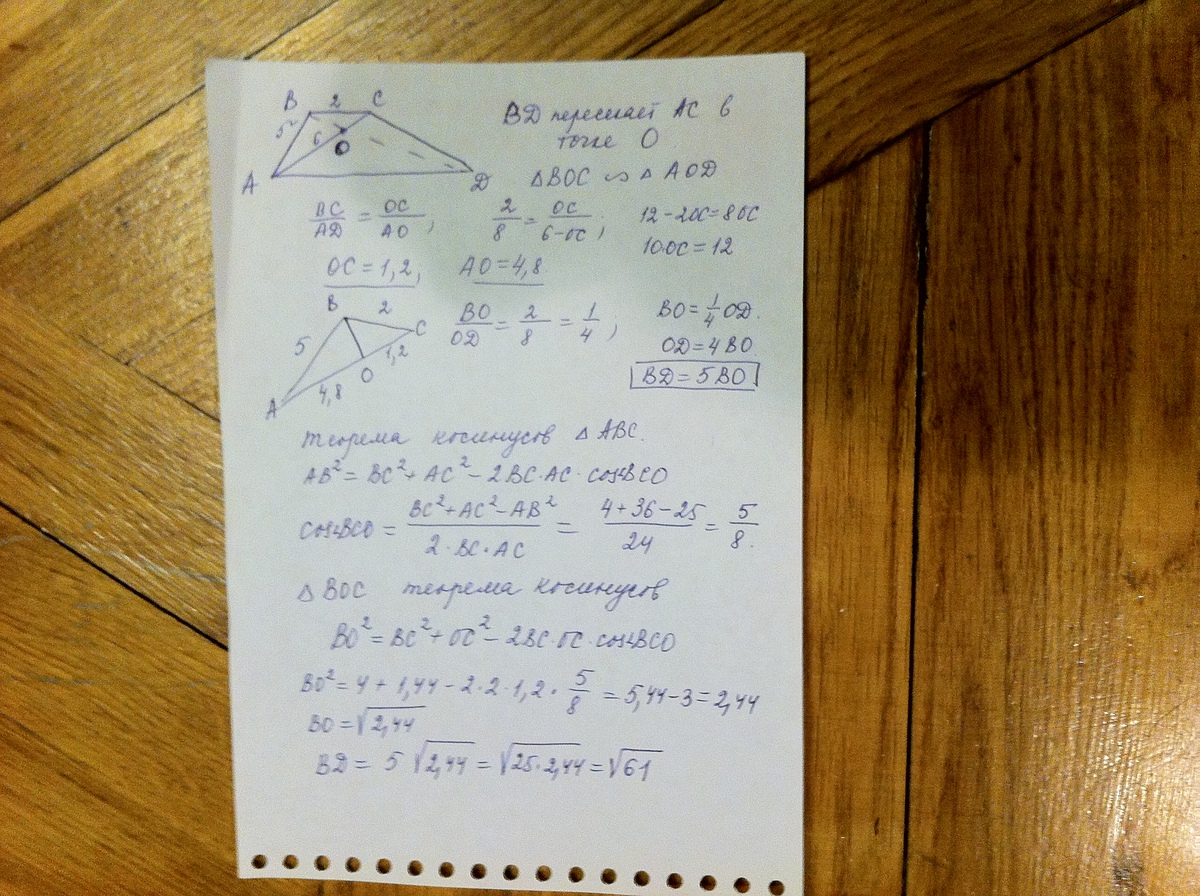 B 2 C
5
6
O
A
D
BD пересекает AC в
точке O
△BOC ∽ △AOD
BC/AD = OC/AO;
2/8 = OC/6-OC;
12-2OC=8OC
10·OC=12
OC=1,2, AO=4,8
B
2
5
C
O
1,2
4,8
A
BO/OD = 2/8 = 1/4;
BO=1/4 OD.
OD=4BO
BD=5BO
теорема косинусов △ABC.
AB²=BC²+AC²-2BC·AC·cos∠BCO
cos∠BCO = BC²+AC²-AB²/2·BC·AC = 4+36-25/24 = 5/8.
△BOC теорема косинусов
BO²=BC²+OC²-2BC·OC·cos∠BCO
BO²=4+1,44-2·2·1,2·5/8 =5,44-3=2,44
BO=√2,44
BD= 5√2,44=√25·2,44=√61